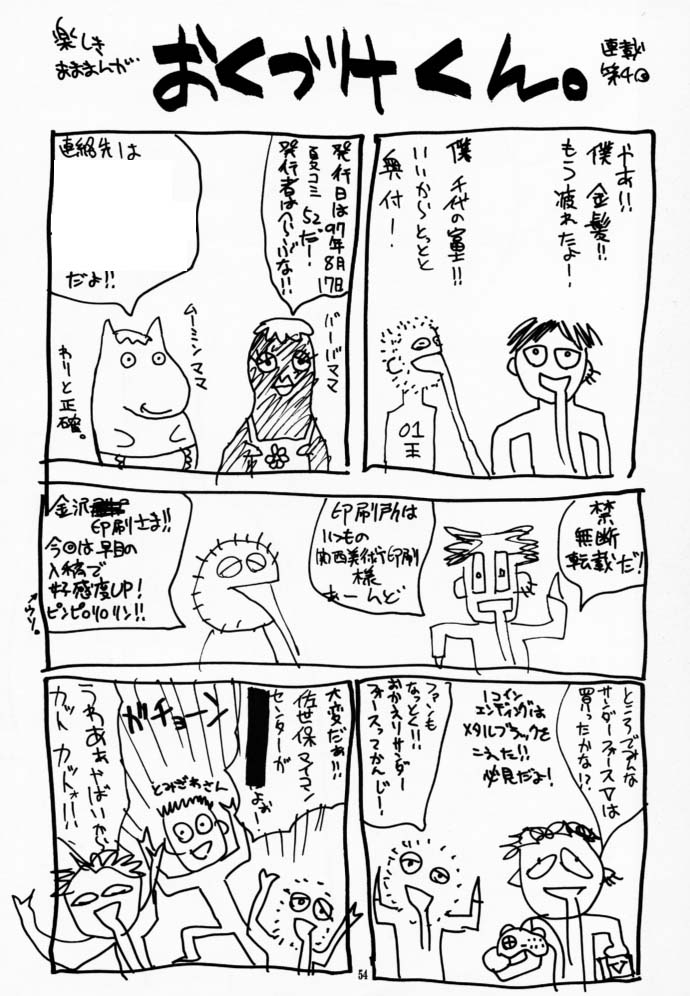 楽しき
おままんが
おくづけくん。
連載
第4回
やあ!!
僕 金髪!!
もう疲れたよー!
僕 千代の富士!!
いいからとっとと
奥付ー!
01
王
発行日は97年8月17日
夏コミ 52だ!
発行者は
な!!
連絡先は
だよ!!
バーバママ
ムーミンママ
わりと正確。
禁
無断
転載だ!
印刷所は
いつもの
関西美術印刷
様
あーんど
金沢
印刷さま!!
今回は早目の
入稿で
好感度UP!
ピンピロリロリン!!
ウソ。
ところでみんな
サンダーフォースVは
買ったかな!?
1コイン
エンディングは
メタルブラックを
こえた!!
必見だよ!
ファンも
なっとく!!
おかえりサンダー
フォースってかんじー!
大変だぁ!!
佐世保マイコン
センターが
よぉ!
ガチョーン
とみざわさん
うわあぁやばいから
カット カットォ!!
54